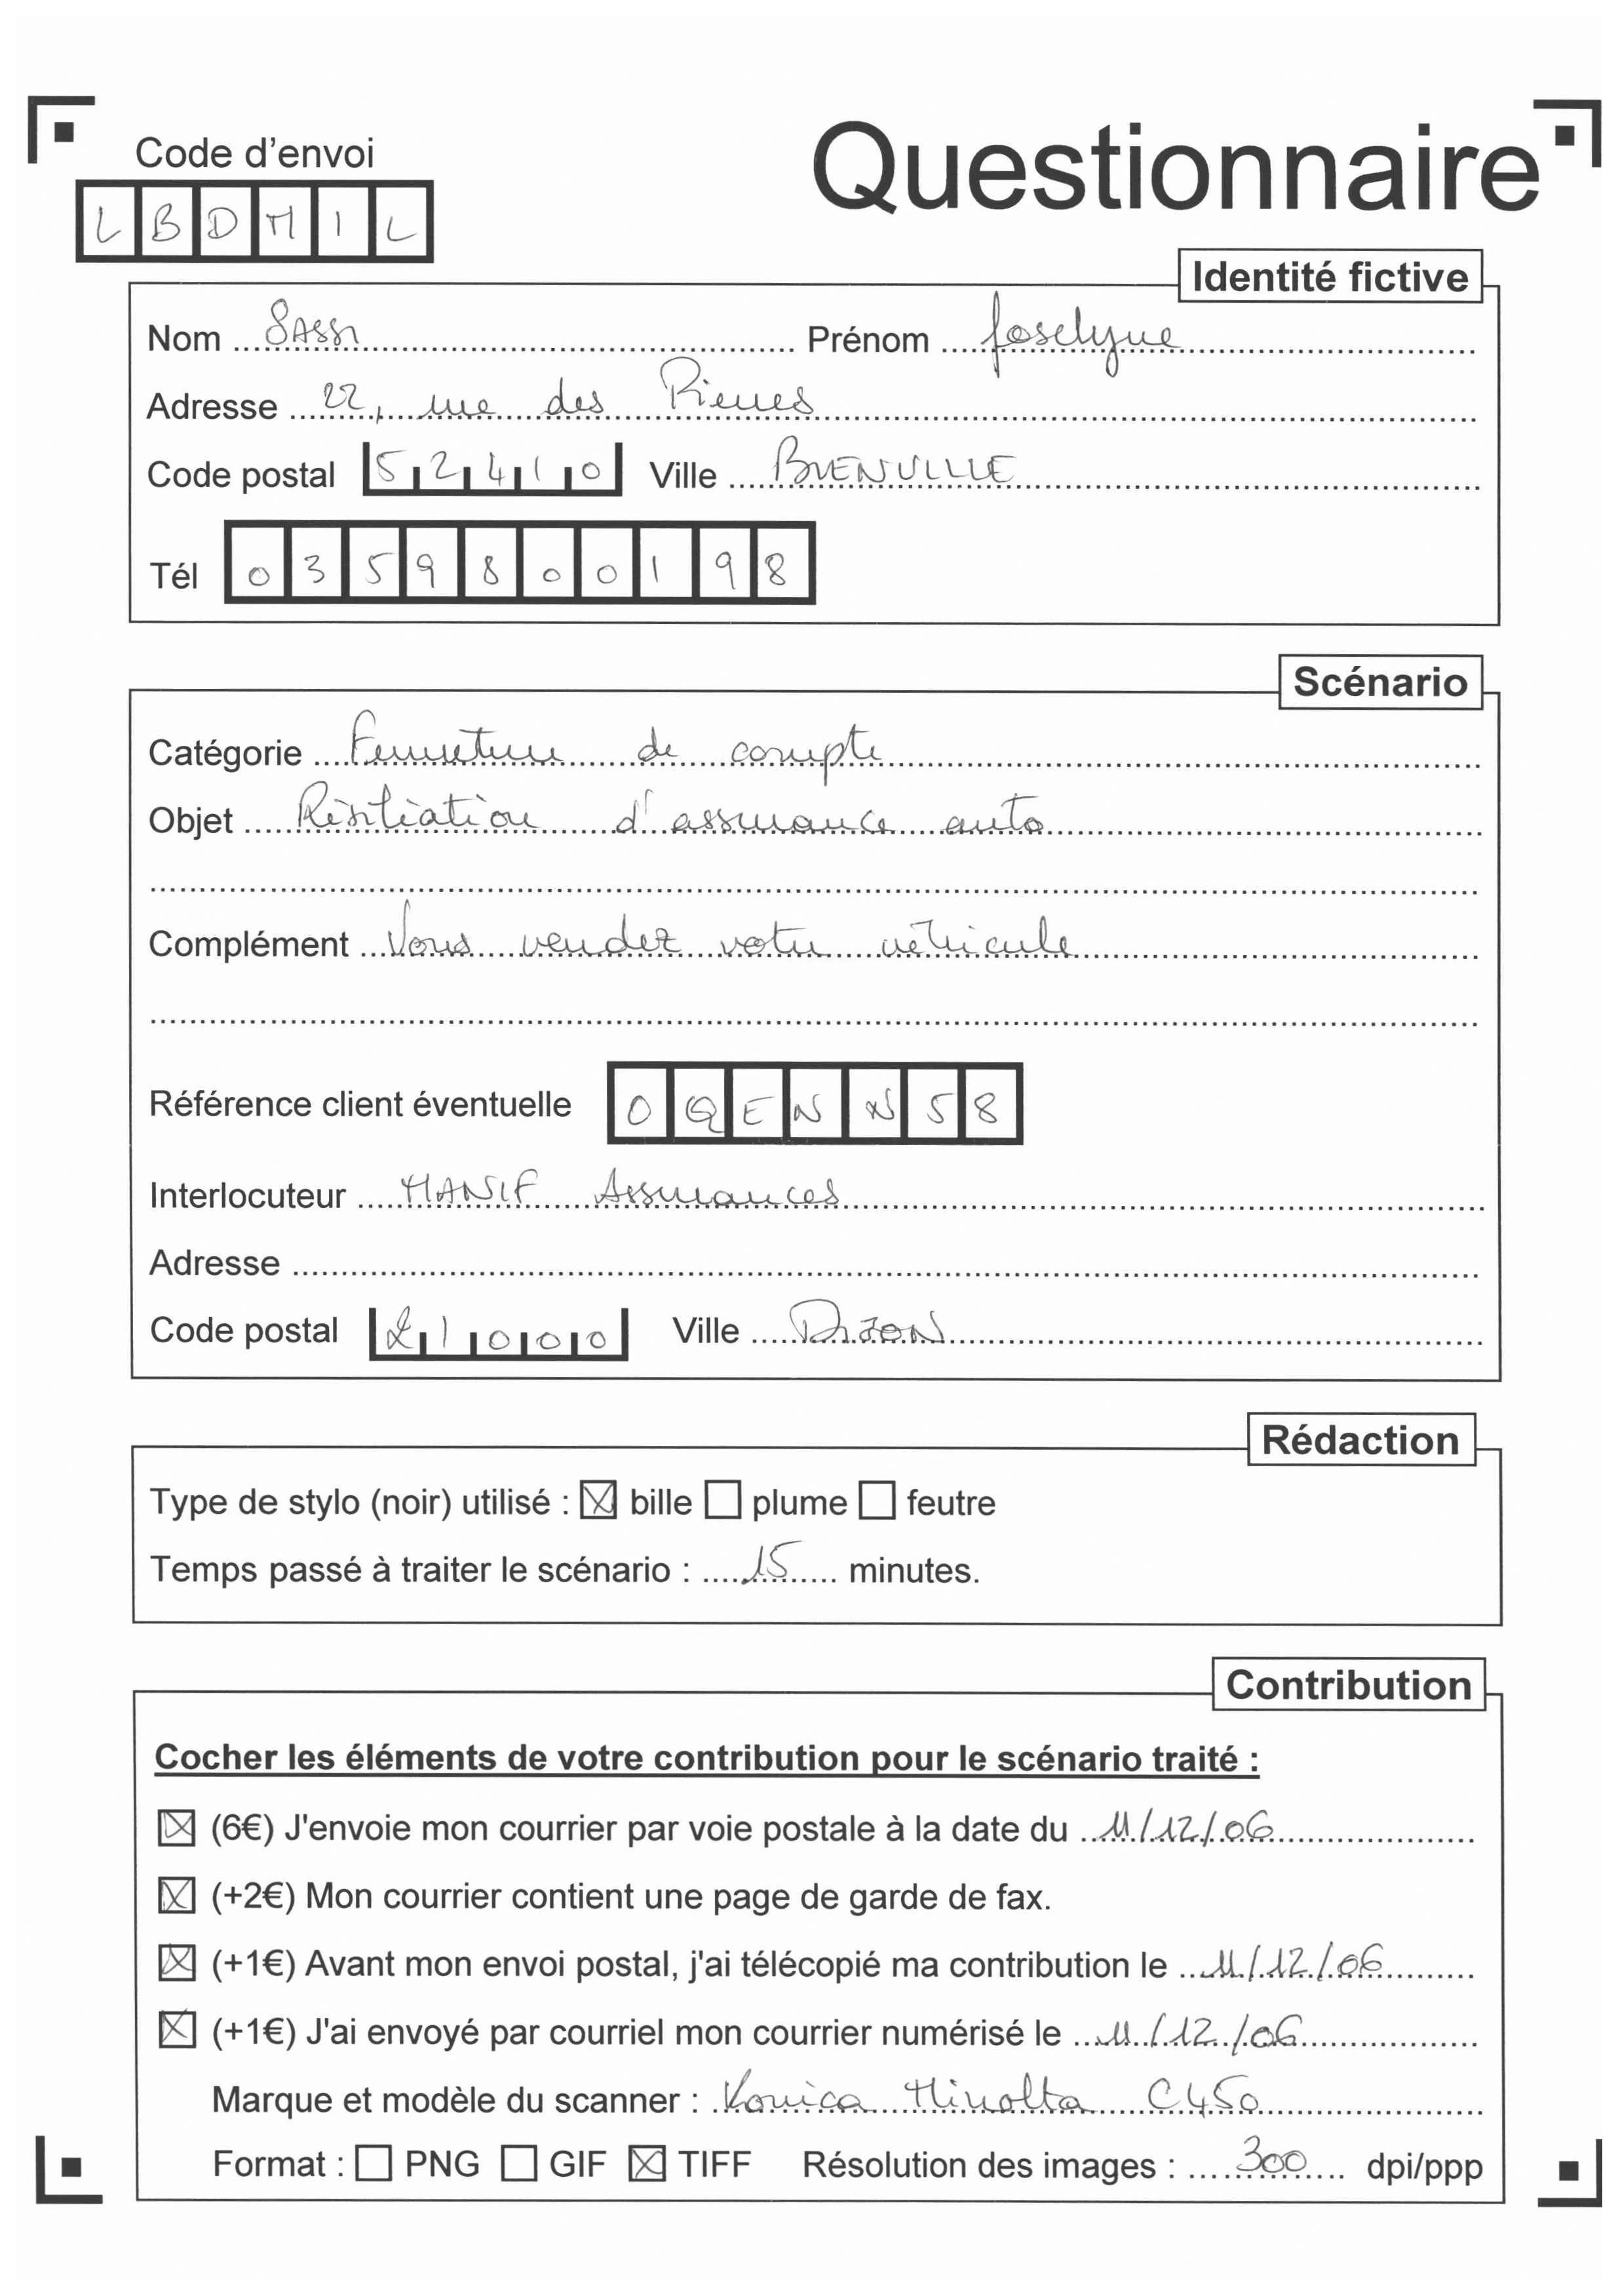 Code d'envoi
Questionnaire
L B D M I L
Identité fictive
Nom Sassi Prénom Joselyne
Adresse 22, rue des Pierres
Code postal 52410 Ville BIENVILLE
Tél 0359800198
Scénario
Catégorie Fermeture de compte
Objet Résiliation d'assurance auto
Complément Vous vendez votre véhicule
Référence client éventuelle OQENN58
Interlocuteur MANIF Assurances
Adresse
Code postal 21000 Ville DIJON
Rédaction
Type de stylo (noir) utilisé : ☒ bille ☐ plume ☐ feutre
Temps passé à traiter le scénario : 15 minutes.
Contribution
Cocher les éléments de votre contribution pour le scénario traité :
☒ (6€) J'envoie mon courrier par voie postale à la date du 11/12/06
☒ (+2€) Mon courrier contient une page de garde de fax.
☒ (+1€) Avant mon envoi postal, j'ai télécopié ma contribution le 11/12/06
☒ (+1€) J'ai envoyé par courriel mon courrier numérisé le 11/12/06
Marque et modèle du scanner : Konica Minolta C450
Format : ☐ PNG ☐ GIF ☒ TIFF Résolution des images : 300 dpi/ppp